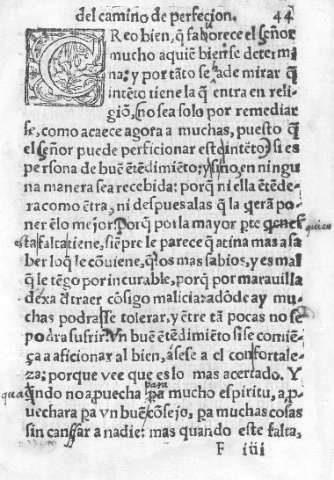 del camino de perfecion. 44
CReo bien, q̃ faborece el señor
mucho aquiē bien se determi
na: y por tāto se ade mirar q̃
intēto tiene la q̃ entra en reli-
giō, no sea solo por remediar
se, como acaece agora a muchas, puesto q̃
el señor puede perficionar este intēto, si es
persona de buē ētēdimiēto; y sino, en ningu
na manera sea recebida: porq̃ ni ella ētēde-
ra como ētra, ni despues a las q̃ la q̃rrā po-
ner ē lo mejor. Porq̃ por la mayor pte quien
esta falta tiene, siēpre le parece q̃ atina mas a sa
ber lo q̃ le cōuiene, q̃ los mas sabios, y es mal
q̃ le tēgo por incurable, porq̃ por marauilla
dexa đ traer cōsigo malicia: adōde ay mu-
chas podrasse tolerar, y ētre tā pocas no se
podra sufrir. Vn buē ētēdimiēto si se comiē-
ça a aficionar al bien, asese a el con fortale-
za: porque vee que es lo mas acertado. Y
quãdo no apuecha para mucho espiritu, a p-
uechara pa vn buē cōsejo, pa muchas cosas
sin canssar a nadie: mas quando este falta,
F iiii